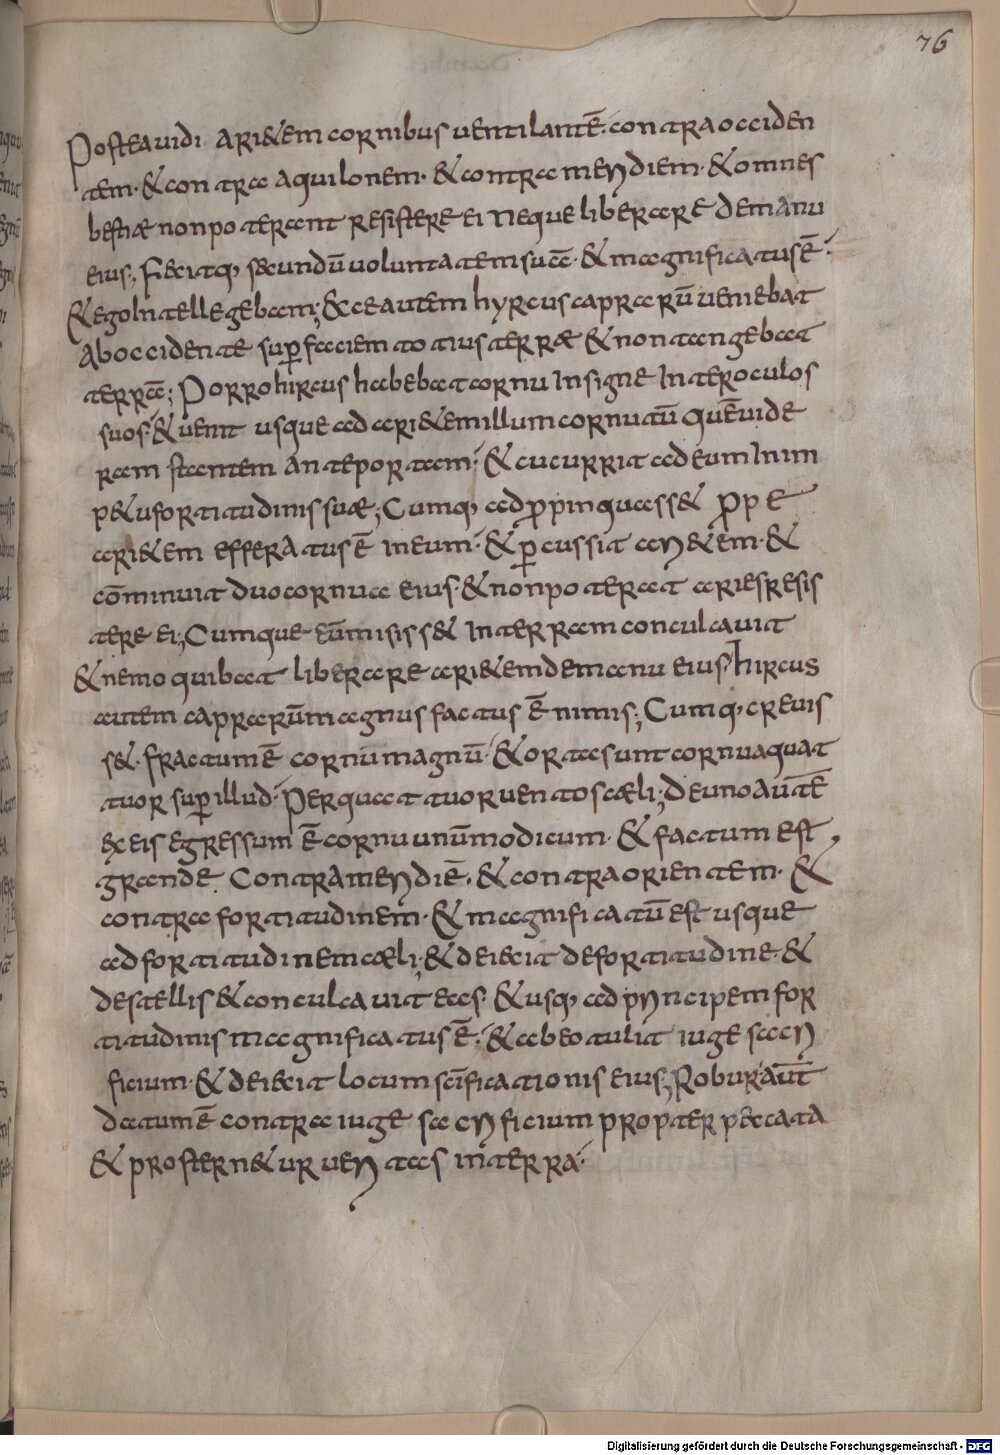 76
Postea uidi arietem cornibus uentilantē· contra occiden
tem· & contra aquilonem· & contra meridiem· & omnes
bestiæ non poterant resistere ei neque liberare de manu
eius; Fecitq; secundū uoluntatem suā· & magnificatus ē·
& ego intellegebam; Ecce autem hyrcus caprarū ueniebat
ab occidente sup faciem totius terræ & non tangebat
terrā; Porro hircus habebat cornu insigne inter oculos
suos· & uenit usque ad ari&em illum cornutū quē uide
ram stantem ante portam· & cucurrit ad eum in im
p&u fortitudinis suæ; Cumq; adpropinquass& prope
ari&em efferatus ē in eum· & pcussit ari&em· &
cōminuit duo cornua eius· & non poterat aries resis
tere ei; Cumque eūm misiss& in terram conculcauit
& nemo quibat liberare ari&em de manu eius hircus
autem caprarūm magnus factus ē nimis; Cumq; creuis
s&· fractum ē cornum magnū· & orta sunt cornua quat
tuor sup illud· Per quattuor uentos cæli; De uno autē
ex eis egressum ē cornu unūm modicum· & factum est
grande Contra meridiē· & contra orientem· &
contra fortitudinem· & magnificatū est usque
ad fortitudinem cæli· & deiecit de fortitudine· &
de stellis & conculcauit eas· & usq; ad principem for
titudinis magnificatus ē· & ab eo tulit iuge sacri
ficium· & deiecit locum scificationis eius; Robur aut
datum ē contra iuge sacrificium propter peccata
& prostern&ur ueritas in terra·
Digitalisierung gefördert durch die Deutsche Forschungsgemeinschaft - DFG